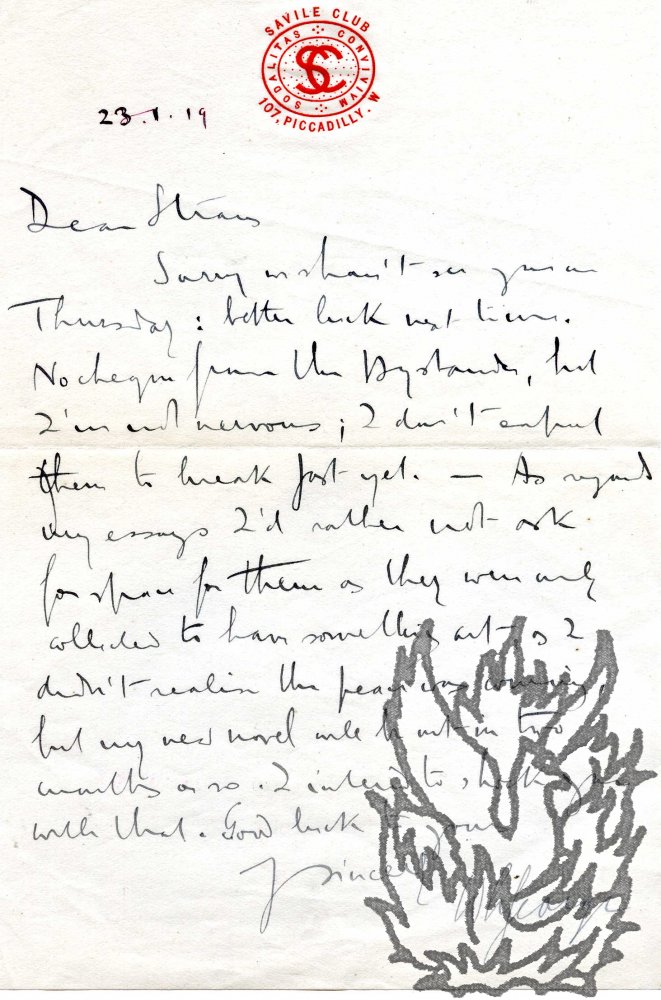 SAVILE CLUB
SODALITAS CONVIVIVM
SC
107, PICCADILLY. W
23.1.19
Dear Straus
Sorry we shan't see you on
Thursday: better luck next time.
No cheque from the Bystander, but
I'm not nervous; I don't expect
them to break just yet. — As regards
my essays I'd rather not ask
for space for them as they were only
collected to have something out, as I
didn't realise the peace was coming,
but my new novel will be out in two
months or so. I intend to you
with that. Good luck to yours
Sincerely
W L George